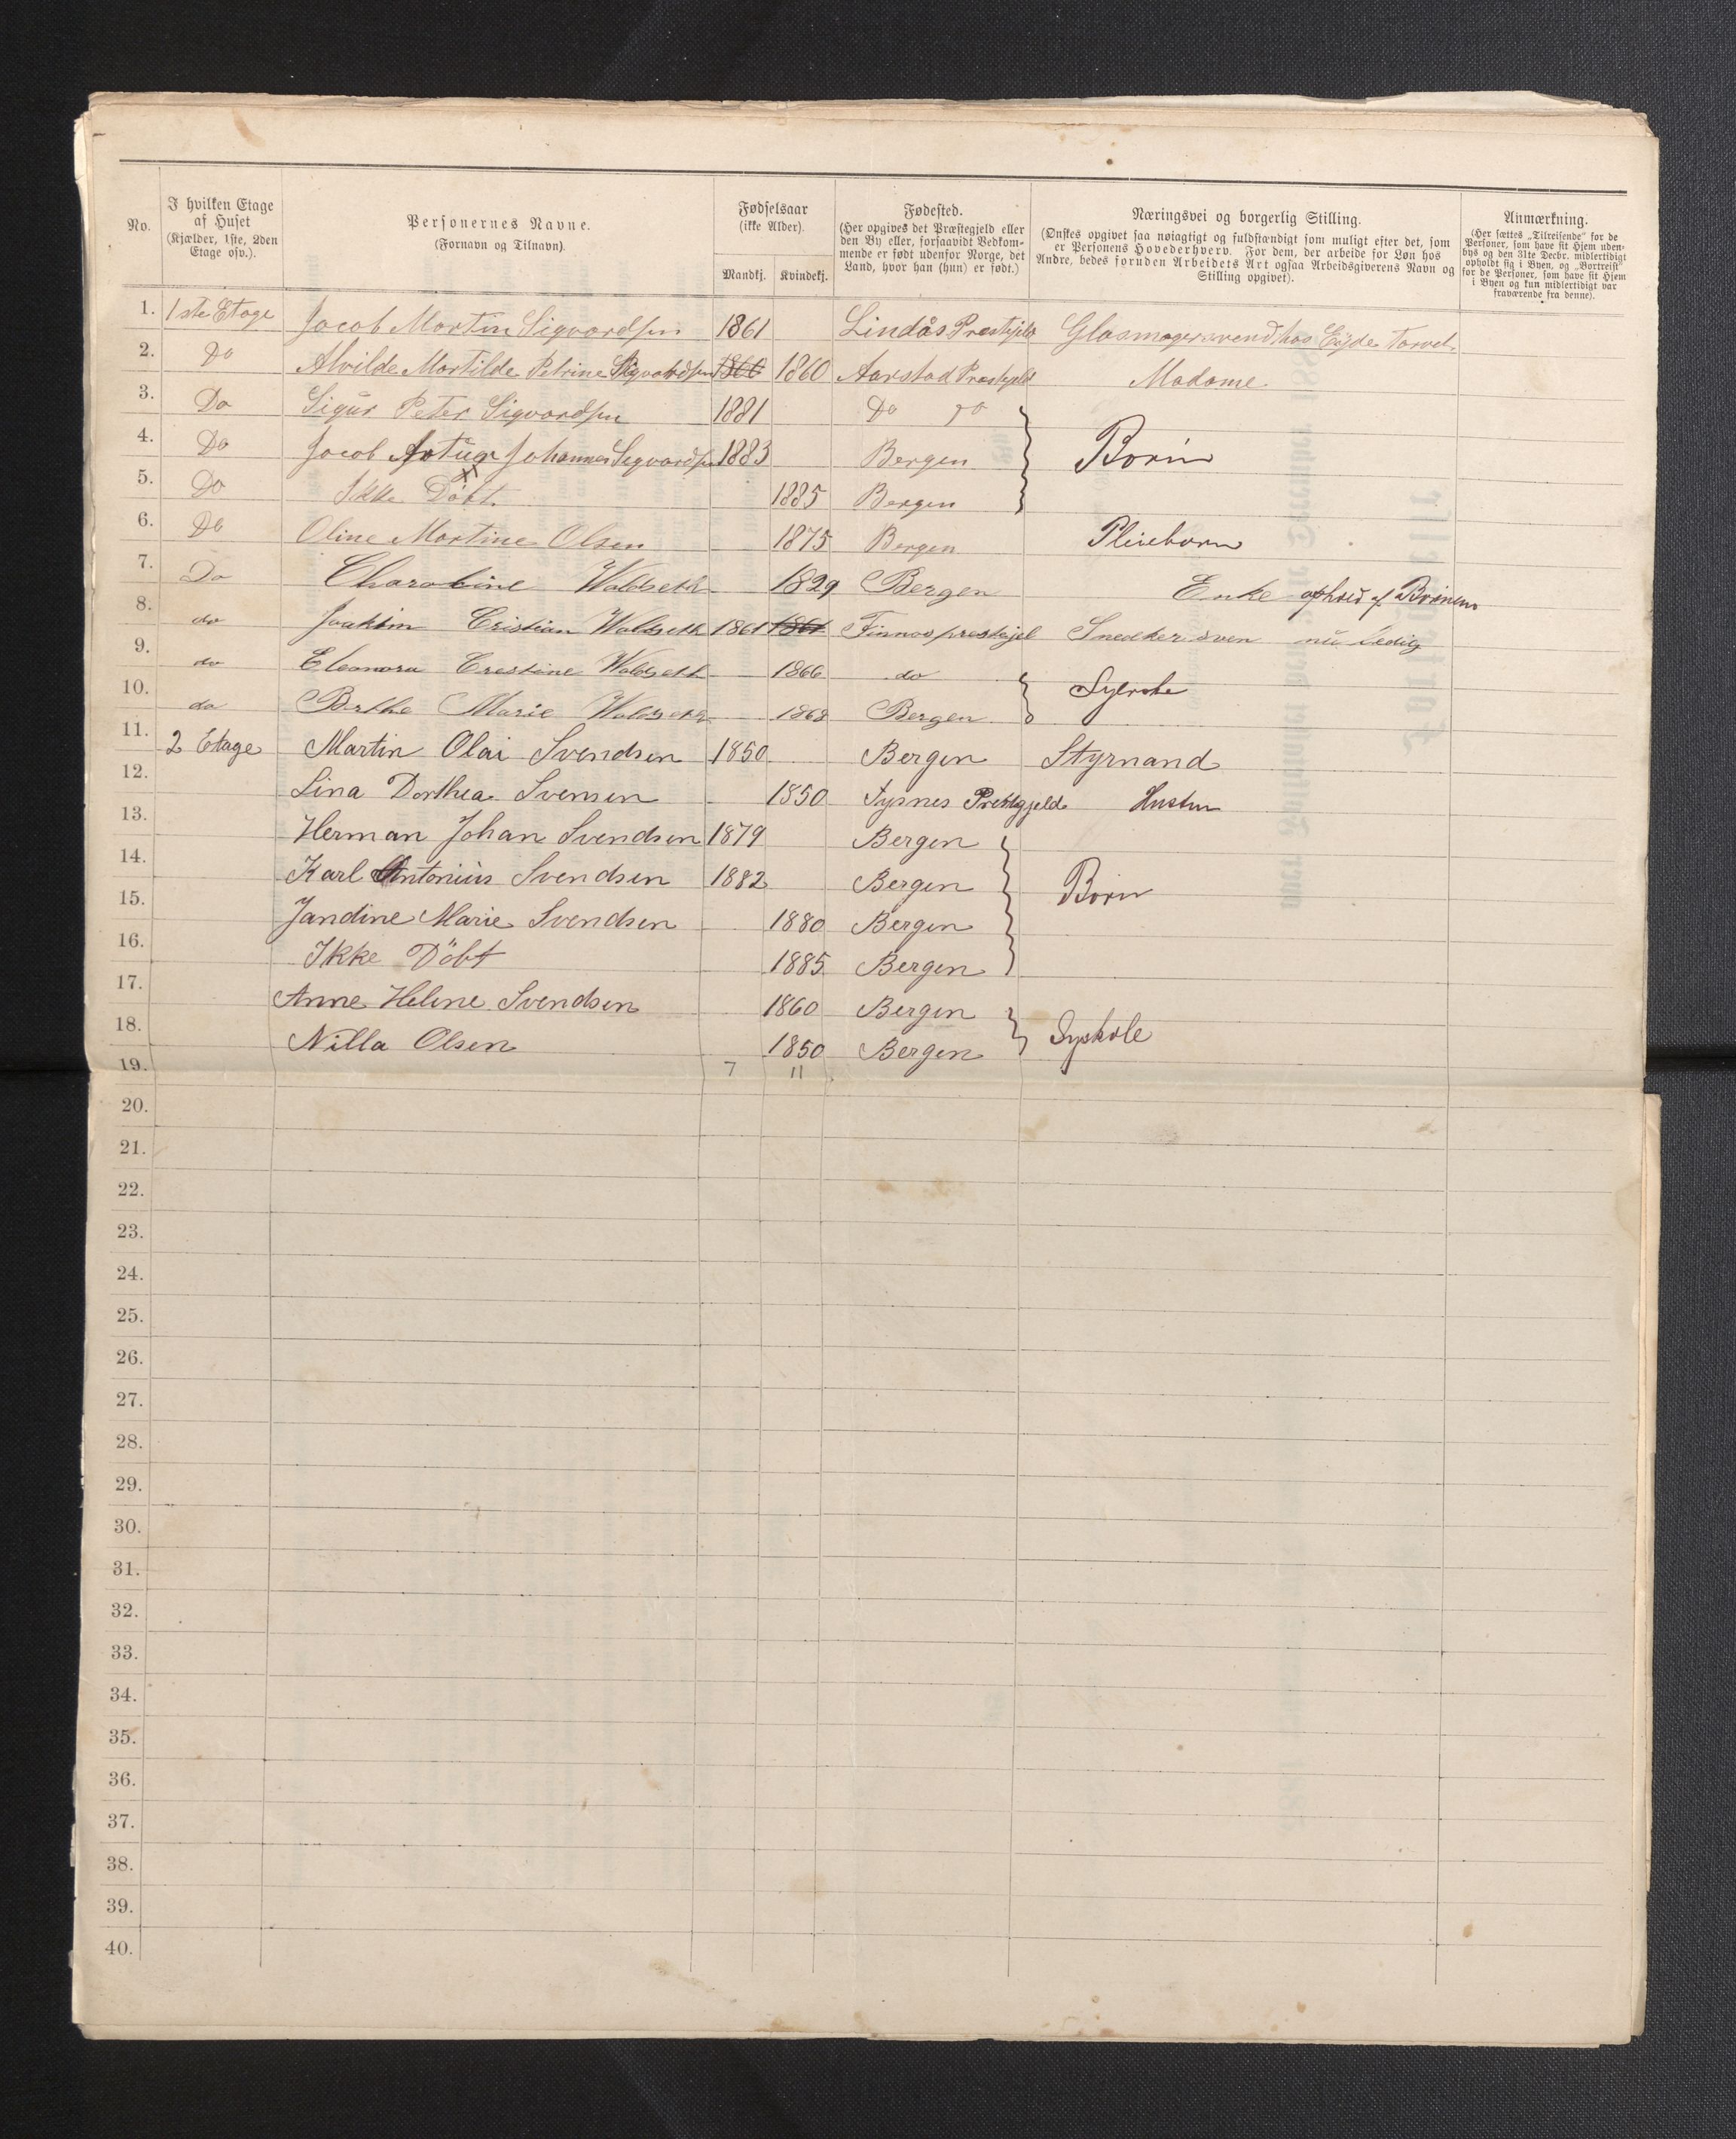 No. | I hvilken Etage af Huset (Kjælder, 1ste, 2den Etage osv.). | Personernes Navne. (Fornavn og Tilnavn). | Fødselsaar (ikke Alder). Mandkj. | Kvindekj. | Fødested. (Her opgives det Præstegjeld eller den By eller, forsaavidt Vedkommende er født udenfor Norge, det Land, hvor han (hun) er født.) | Næringsvei og borgerlig Stilling. (Ønskes opgivet saa nøiagtigt og fuldstændigt som muligt efter det, som er Personens Hovederhverv. For dem, der arbeide for Løn hos Andre, bedes foruden Arbeidets Art ogsaa Arbeidsgiverens Navn og Stilling opgivet). | Anmærkning. (Her sættes „Tilreisende" for de Personer, som have sit Hjem udenbys og den 31te Decbr. midlertidigt opholdt sig i Byen, og „Bortreist" for de Personer, som have sit Hjem i Byen og kun midlertidigt var fraværende fra denne).
1. 1ste Etage Jacob Martin Sigvardsen 1861 Lindås Prestejeld Glasmagersvend hos Eyde Torvet.
2. Do Alvilde Martilde Petrine Sigvardsen 1860 1860 Aarstad Prestejeld Madame
3. Do Sigur Peter Sigvardsen 1881 Do Do
4. Do Jacob Artur Johannes Sigvardsen 1883 Bergen Born
5. Do Ikke Döbt. 1885 Bergen
6. Do Oline Martine Olsen 1875 Bergen Pleieborn
7. Do Charoline 1829 Bergen Enke af Börnene
8. do Joakim Cristian 1861 1861 Finnos prestejel Snedker sven nü Ledig
9. do Eleonora Crestine 1866 do
10. do Berthe Marie 1868 Bergen Syerske
11. 2 Etage Martin Olai Svendsen 1850 Bergen Styrmand
12. Lina Dorthea Svensen 1850 Tysnes Prestgjeld Hustru
13. Herman Johan Svendsen 1879 Bergen
14. Karl Antonius Svendsen 1882 Bergen Born
15. Jandine Marie Svendsen 1880 Bergen
16. Ikke Döbt 1885 Bergen
17. Anne Heline Svendsen 1860 Bergen
18. Nilla Olsen 1850 Bergen Syskole
19. 7 11
20.
21.
22.
23.
24.
25.
26.
27.
28.
29.
30.
31.
32.
33.
34.
35.
36.
37.
38.
39.
40.